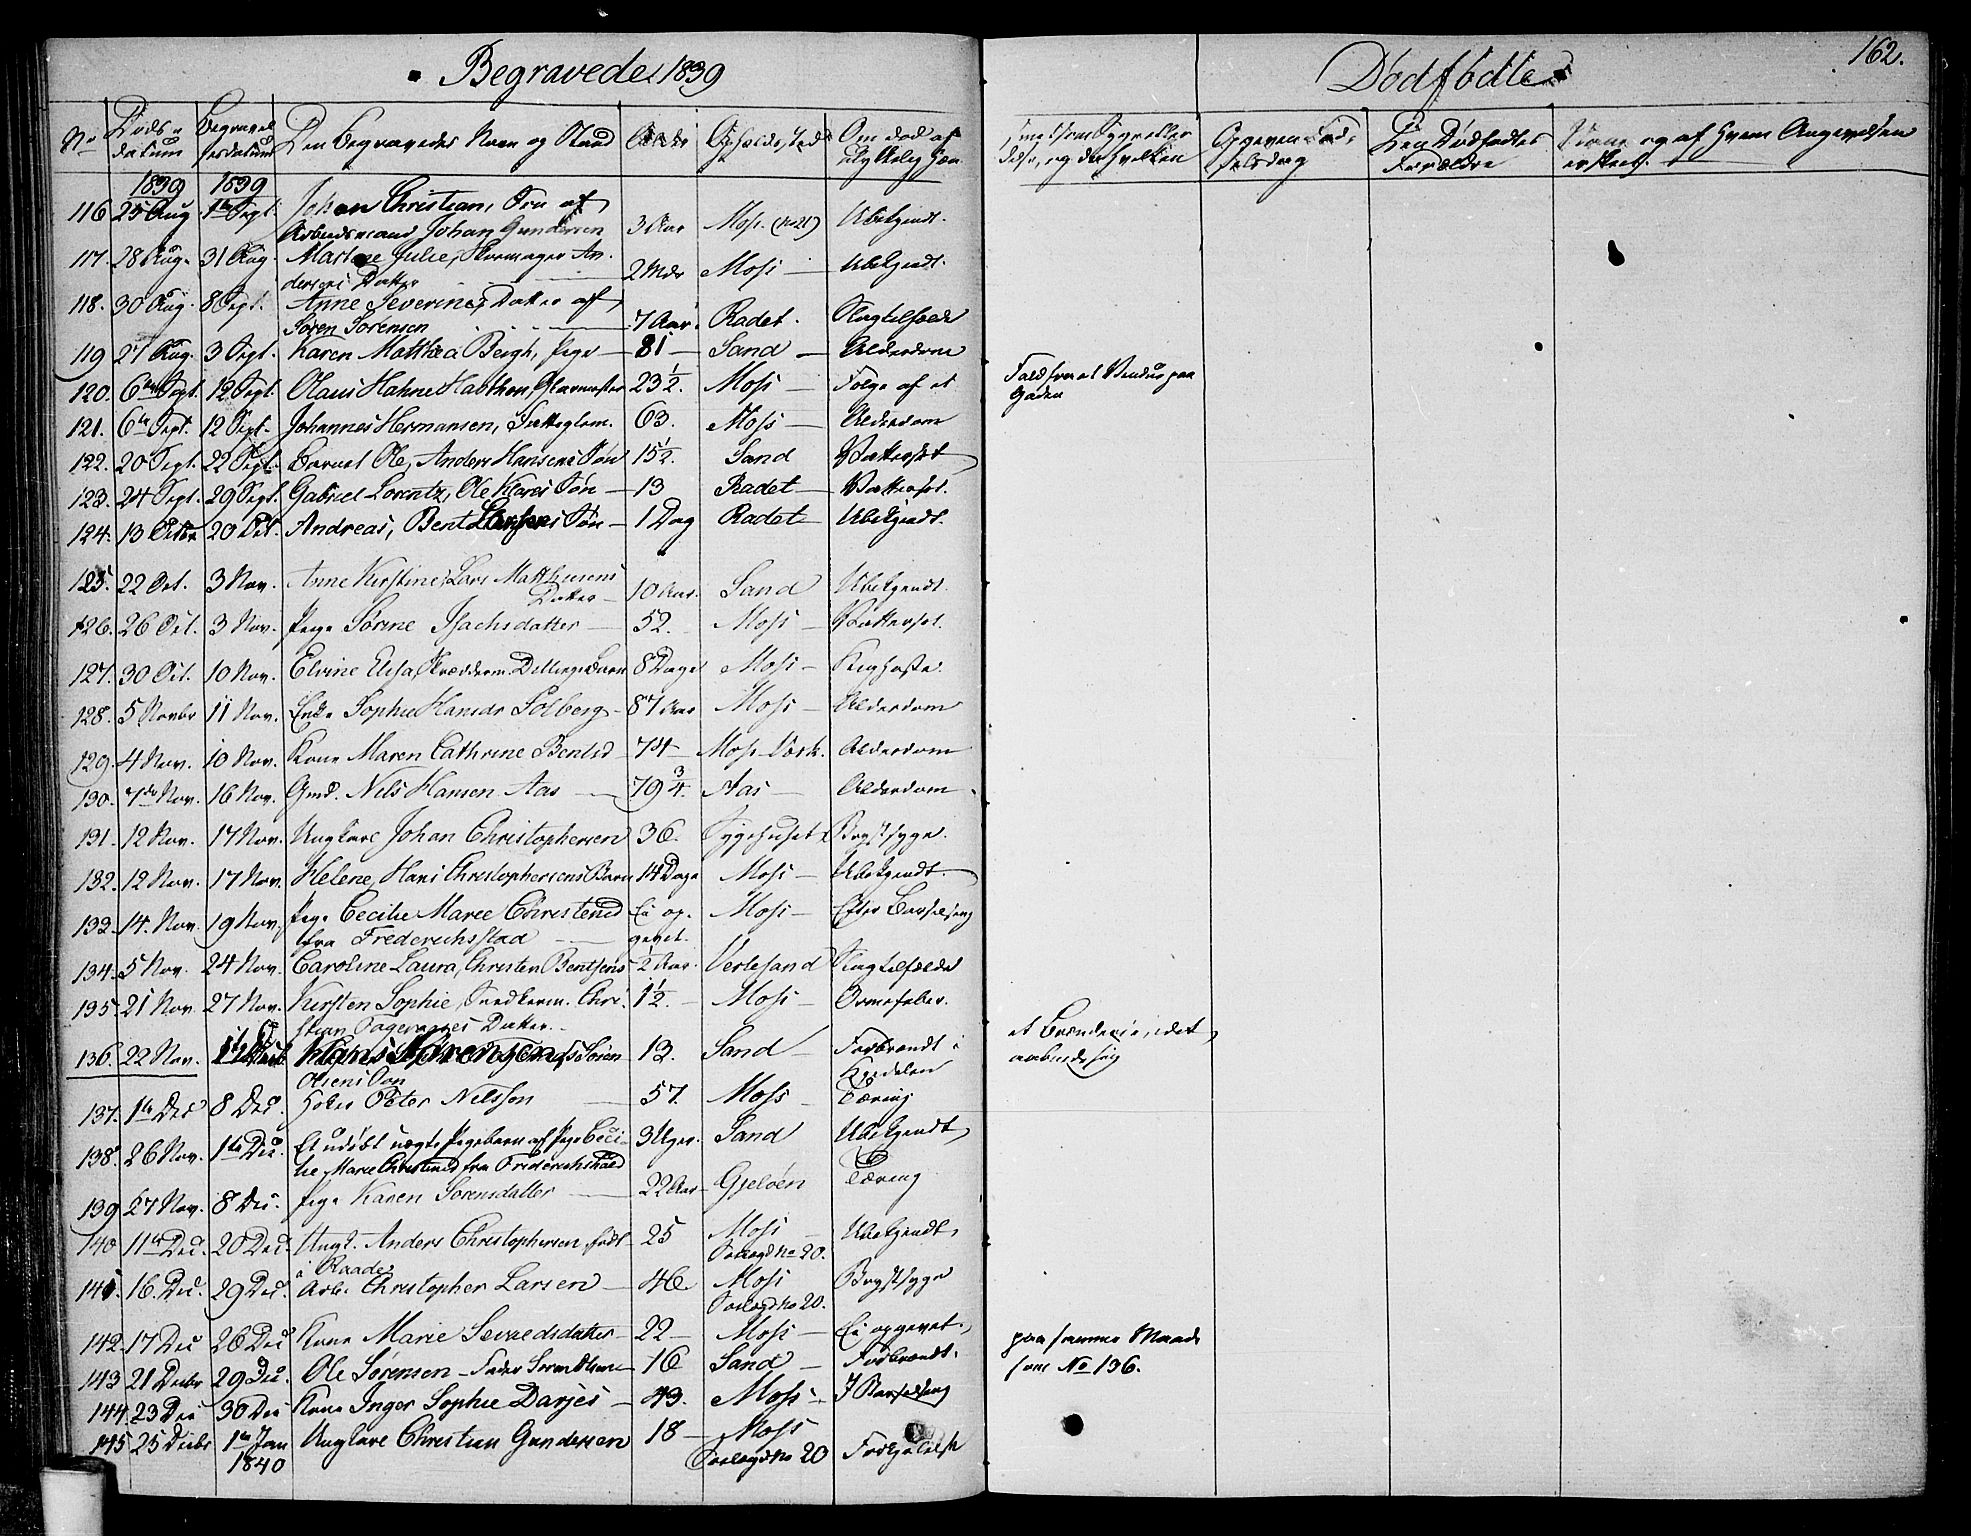 Begravede 1839
Dødfødte
162.
No Døds- datum Begravel- sesdatum Den Begravedes Navn og Stand Alder Opholdssted Om død af ulykkelig Hæn-
Opgiven Fød- selsdag Den Dødfødtes Forældre og af hvem Angivelsen
1839 1839
116 25 Aug 1te Sept. Johan Christian, Søn af
Arbeidsmand Johan Gundersen 3 Aar Moss. Ubekjendt.
117. 28 Aug. 31 Aug. Martine Julie, Skomager An-
dersens Datter 2 Mdr Moss — Ubekjendt.
118. 30 Aug. 8 Sept. Anne Severine, Datter af
Søren Sørensen 7 Aar Radet. Slagtilfælde
119 27 Aug. 3 Sept. Karen Matthea Bergh, Pige — 81 — Sand — Alderdom
120. 6te Sept. 12 Sept. Olaus Hahne Glarmester 23 1/2. Moss — Følge af et
Fald fra et Vindue paa
Gaden
121. 6te Sept. 12 Sept. Johannes Hermansen, Fattiglem. 63. Moss — Alderdom
122. 20 Sept. 22 Sept. Barnet Ole, Anders Hansens Søn 15 1/2. Sand Vattersot
123. 24 Sept. 29 Sept. Gabriel Lorentz, Ole Søn — 13 Radet — Vattersot.
124. 13 Octbr 20 Oct. Andreas, Bent Larsens Søn — 1 Dag Radet — Ubekjendt.
125. 22 Oct. 3 Nov. Anne Kirstine, Lars Matthisens
Datter — 10 Aar. Sand Ubekjendt.
126. 26 Oct. 3 Nov. Pige Sørine Isachsdatter — 52. — Moss — Vattersot.
127. 30 Oct. 10 Nov. Elvine Elisa, Skrædderm. Dillings Barn 8 Dage Moss — Kighoste
128. 5 Novbr 11 Nov. Enke Sophie Hansdr Solberg — 87 Aar Moss — Alderdom
129. 4 Nov. 10 Nov. Kone Maren Cathrine Bentsd 74 — Moss Værk. Alderdom
130. 7de Nov. 16 Nov. Gmd. Nils Hansen Aas — 79 3/4. Aas — Alderdom
131. 12 Nov. 17 Nov. Ungkarl Johan Christophersen 36. Sygehuset Brystsyge.
132. 12 Nov. 17 Nov. Helene, Hans Christophersens Barn 14 Dage Moss — Ubekjendt.
133. 14. Nov. 19 Nov. Pige Cecilie Marie Christensd Ei op- Moss — Efter Barselseng
fra Frederichsstad — gevet.
134. 5 Nov. 24 Nov. Caroline Laura, Christen Bentsens 1/2 Aar. Verlesand Slagtilfælde
135. 21 Nov. 27 Nov. Kirsten Sophie, Snedkerm. Chri- 1 1/2. — Moss — Ormefeber.
stian Datter.
136. 22 Nov. Hans Sørensen, Søren 13. Sand — Forbrændt i
Olsens Søn Kjedelen
et Brænderie, idet
137. 1te Dec 8 Dec. Peter Nilsson — 57. Moss — Tæring
138. 26 Nov. 1te Dec. Et udøbt uægte Pigebarn af Pige Ceci- 3 Uger. Sand Ubekjendt
lie Marie Christensd fra Friderichshald
139 27 Nov. 8 Dec. Pige Karen Sørensdatter — 22 Aar — Gjeløen Tæring
140 11te Dec. 20 Dec. Ungk. Anders Christophersen, født 25 Moss — Ubekjendt
i Raade No 20.
141. 16. Dec. 29 Dec. Arb. Christopher Larsen — 46 — Moss Brystsyge
No 20.
142. 17 Dec 26 Dec Kone Marie Sevaldsdatter — 22 — Moss — Ei opgevet.
143 21 Decbr 29 Dec. Ole Sørensen — 16 Sand — Forbrændt.
paa samme Maade
som No 136.
144. 23 Dec 30 Dec Kone Inger Sophie Darjes — 43. Moss — I Barselseng
145 25 Decbr 1te Jan Ungkarl Christian Gundersen 18 — Moss
1840 No 20 Forkjølelse